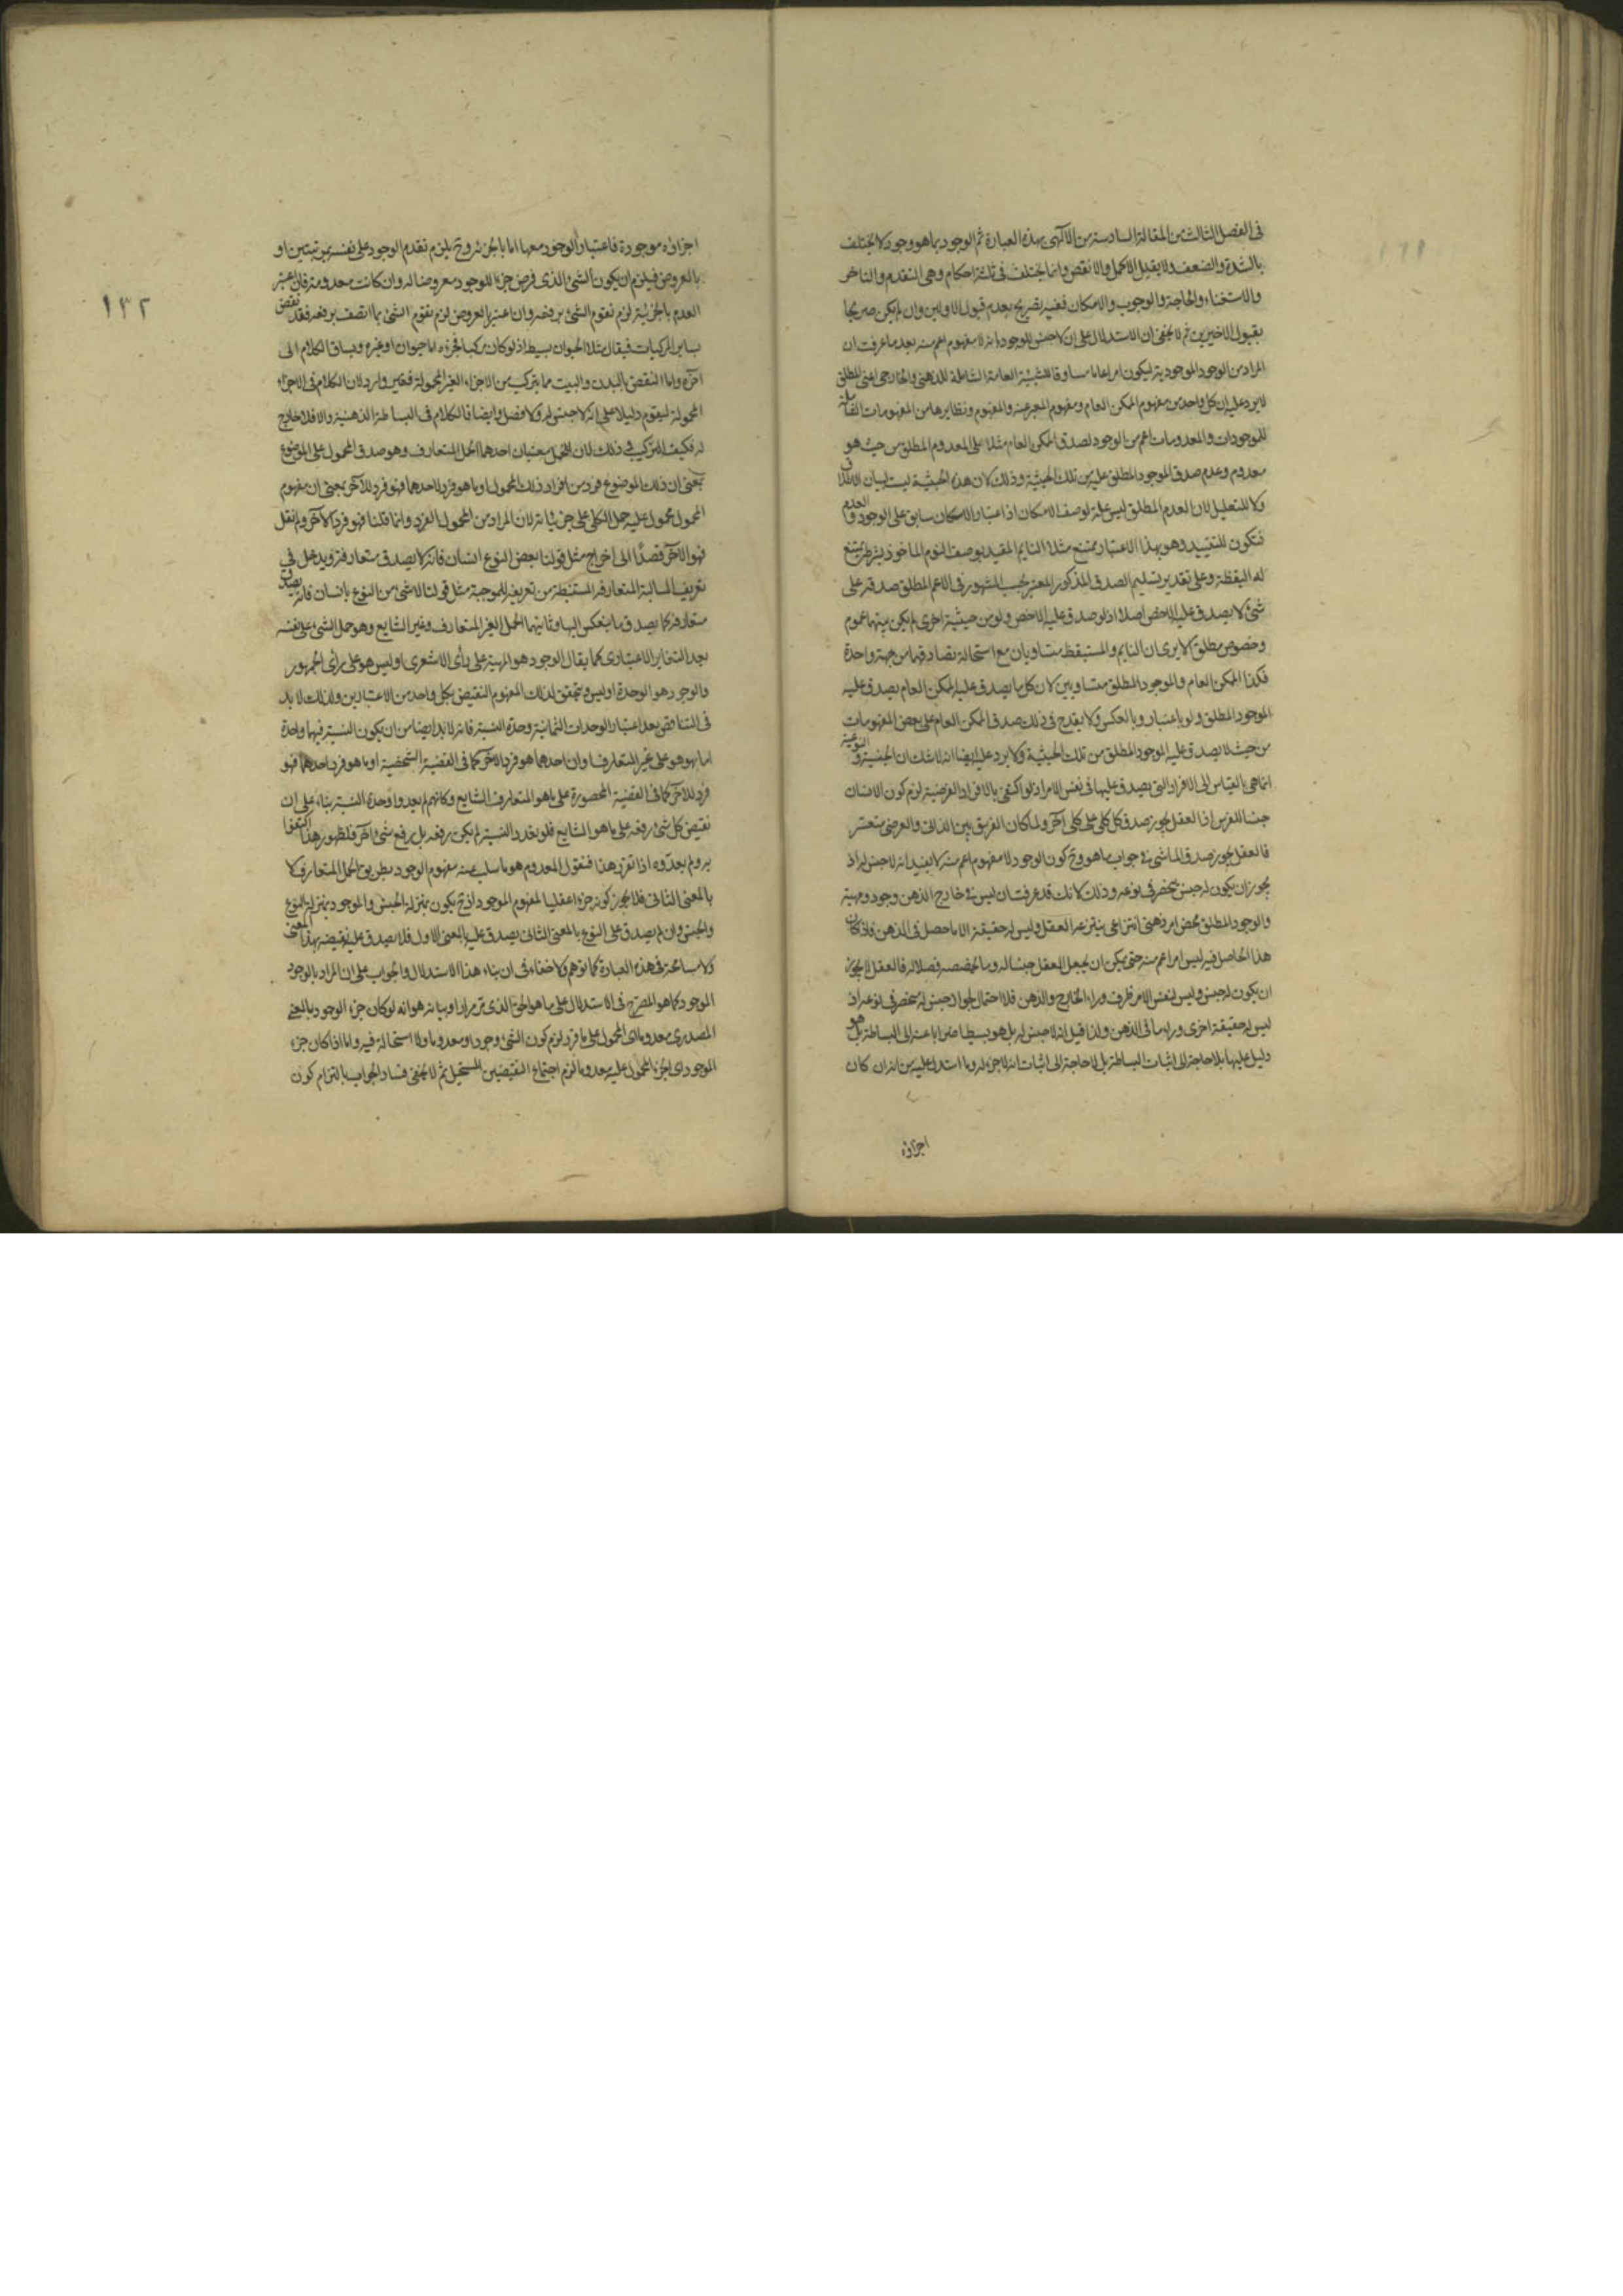 فى الفصل الثالث من المقالة السادسة من الالهى بهذه العبارة ثم الوجود بما هو وجود لا يختلف
بالشدة والضعف ولا يقبل الاكمل والانقص وانما يختلف فى ثلثة احكام وهى التقدم والتاخر
والاستغناء والحاجة والوجوب والامكان ففيه تصريح بعدم قبول الاولين وان لم يكن صريحا
بقبول الاخيرين ثم لا يخفى ان الاستدلال على ان لا جنس للوجود انه لا مفهوم اعم منه بعد ما عرفت ان
المراد من الوجود الموجودية ليكون امرا عاما مساوقا للشيئية العامة الشاملة للذهنى والخارجى اعنى المطلق
لا يرد عليه ان كل واحد من مفهوم الممكن العام ومفهوم المخبر عنه والمفهوم ونظايرها من المفهومات الشاملة
للموجودات والمعدومات اعم من الوجود لصدق الممكن العام مثلا على المعدوم المطلق من حيث هو
معدوم وعدم صدق الموجود المطلق عليه من تلك الحيثية وذلك لان هذه الحيثية ليست لبيان الاطلاق
ولا للتعليل لان العدم المطلق ليس علة لوصف الامكان اذ اعتبار الامكان سابق على الوجود والعدم
فتكون للتقييد وهو بهذا الاعتبار ممتنع مثلا النايم المقيد بوصف النوم الماخوذ بشرطه يمتنع
له اليقظة وعلى تقدير تسليم الصدق المذكور المعتبر بحسب المشهور فى الاعم المطلق صدقه على
شئ لا يصدق عليه الاخص اصلا اذ لو صدق عليه الاخص ولو من حيثية اخرى لم يكن بينهما عموم
وخصوص مطلق الا يرى ان النايم والمستيقظ متساويان مع استحالة تصادقهما من جهة واحدة
فكذا الممكن العام والموجود المطلق متساويين لان كل ما يصدق عليه الممكن العام يصدق عليه
الموجود المطلق ولو باعتبار وبالعكس ولا يقدح فى ذلك صدق الممكن العام على بعض المفهومات
من حيث لا يصدق عليه الموجود المطلق من تلك الحيثية ولا يرد عليه ايضا انه لا شك ان الجنسية والنوعية
انما هى بالقياس الى الافراد التى يصدق عليها فى نفس الامر اذ لو اكتفى بالافراد الفرضية لزم كون الانسان
جنسا للفرس اذ العقل يجوز صدق كل كلى على كلى آخر ولما كان الفرق بين الذاتى والعرضى متعسر
فالعقل يجوز صدق الماشى فى جواب ما هو وح كون الوجود لا مفهوم اعم منه لا يفيد انه لا جنس له اذ
يجوز ان يكون له جنس ينحصر فى نوعه وذلك لانك قد عرفت ان ليس فى خارج الذهن وجود ومهية
والوجود المطلق محض امر ذهنى انتزاعى ينتزعه العقل وليس له حقيقة الا ما حصل فى الذهن فاذا كان
هذا الحاصل فيه ليس امرا اعم منه حتى يمكن ان يجعل العقل جنسا له وما يخصصه فصلا له فالعقل لا يجوز
ان يكون له جنس وليس لنفس الامر ظرف وراء الخارج والذهن فلا احتمال لجواز جنس له منحصر فى نوعه اذ
ليس له حقيقة اخرى وراء ما فى الذهن ولذا قيل انه لا جنس له بل هو بسيط اعنى الى البساطة بل هو
دليل عليها بلا حاجة الى اثبات البساطة بل لا حاجة الى اثبات انه لا جزء له وما استدل عليه من انه ان كان
اجزاؤه
١٣٢
اجزاؤه موجودة فاعتبار الوجود معها اما بالجزئية وح يلزم تقدم الوجود على نفسه بمرتبتين او
بالعروض فيلزم ان يكون الشئ الذى فرض جزءا للوجود معروضا له وان كانت معدومة فان اعتبر
العدم بالجزئية لزم تقوم الشئ برفعه وان اعتبر بالعروض لزم تقوم الشئ بما اتصف برفعه فقد نقض
بساير المركبات فيقال مثلا الحيوان بسيط اذ لو كان مركبا فجزءه اما حيوان او غيره ويساق الكلام الى
آخره واما النقض بالبدن والبيت مما يتركب من الاجزاء الغير المحمولة فغير وارد لان الكلام فى الاجزاء
المحمولة ليقوم دليلا على انه لا جنس له ولا فصل وايضا الكلام فى البساطة الذهنية والا فلا خارج
له فكيف التركيب فى ذلك لان للحمل معنيان احدهما الحمل المتعارف وهو صدق المحمول على الموضوع
بمعنى ان ذلك الموضوع فرد من افراد ذلك المحمول او ما هو فرد لاحدهما فهو فرد للآخر بمعنى ان مفهوم
المحمول محمول عليه حمل الكلى على جزئياته لان المراد من المحمول الفرد وانما قلنا فهو فرد الآخر ولم نقل
فهو الآخر قصدا الى اخراج مثل قولنا بعض النوع انسان فانه لا يصدق متعارفة ويدخل فى
تعريف السالبة المتعارفة المستنبطة من تعريف الموجبة مثل قولنا لا شئ من النوع بانسان فانه يصدق
متعارفة كما يصدق ما ينعكس اليها وثانيهما الحمل الغير المتعارف وغير الشايع وهو حمل الشئ على نفسه
بعد التغاير الاعتبارى كما يقال الوجود هو المهية على رأى الاشعرى او ليس هو على رأى الجمهور
والوجود هو الوحدة او ليس ويتحقق لذلك المفهوم النقيض بكل واحد من الاعتبارين ولذلك لا بد
فى التناقض بعد اعتبار الوحدات الثمانية وحدة النسبة فانه لا بد ايضا من ان يكون النسبة فيهما واحدة
اما بهو هو على غير المتعارف او ان احدهما هو فرد الآخر كما فى القضية الشخصية او ما هو فرد احدهما فهو
فرد للآخر كما فى القضية المحصورة على ما هو المتعارف الشايع وكانهم لم يعدوا وحدة النسبة بناء على ان
نقيض كل شئ رفعه على ما هو الشايع فلو تعدد النسبة لم يكن رفعه بل رفع شئ آخر فلظهور هذا اكتفوا
به ولم يعدوه اذا تقرر هذا فنقول المعدوم هو ما سلب عنه مفهوم الوجود بطريق الحمل المتعارف لا
بالمعنى الثانى فلا يجوز كونه جزءا عقليا لمفهوم الموجود اذ ح يكون بمنزلة الجنس والموجود بمنزلة النوع
والجنس وان لم يصدق على النوع بالمعنى الثانى يصدق عليه بالمعنى الاول فلا يصدق عليه نقيضه بهذا المعنى
ولا مسامحة فى هذه العبارة كما توهم ولا خفاء فى ان بناء هذا الاستدلال والجواب على ان المراد بالوجود
الموجود كما هو المصرح فى الاستدلال على ما هو الحق الذى مر مرارا وبيانه هو انه لو كان جزء الوجود بالمعنى
المصدرى معدوما اى المحمول على ما قرر لزم كون الشئ وجودا ومعدوما ولا استحالة فيه واما اذا كان جزء
الموجود اى الجزء المحمول عليه معدوما لزم اجتماع النقيضين المستحيل ثم لا يخفى فساد الجواب بالتزام كون